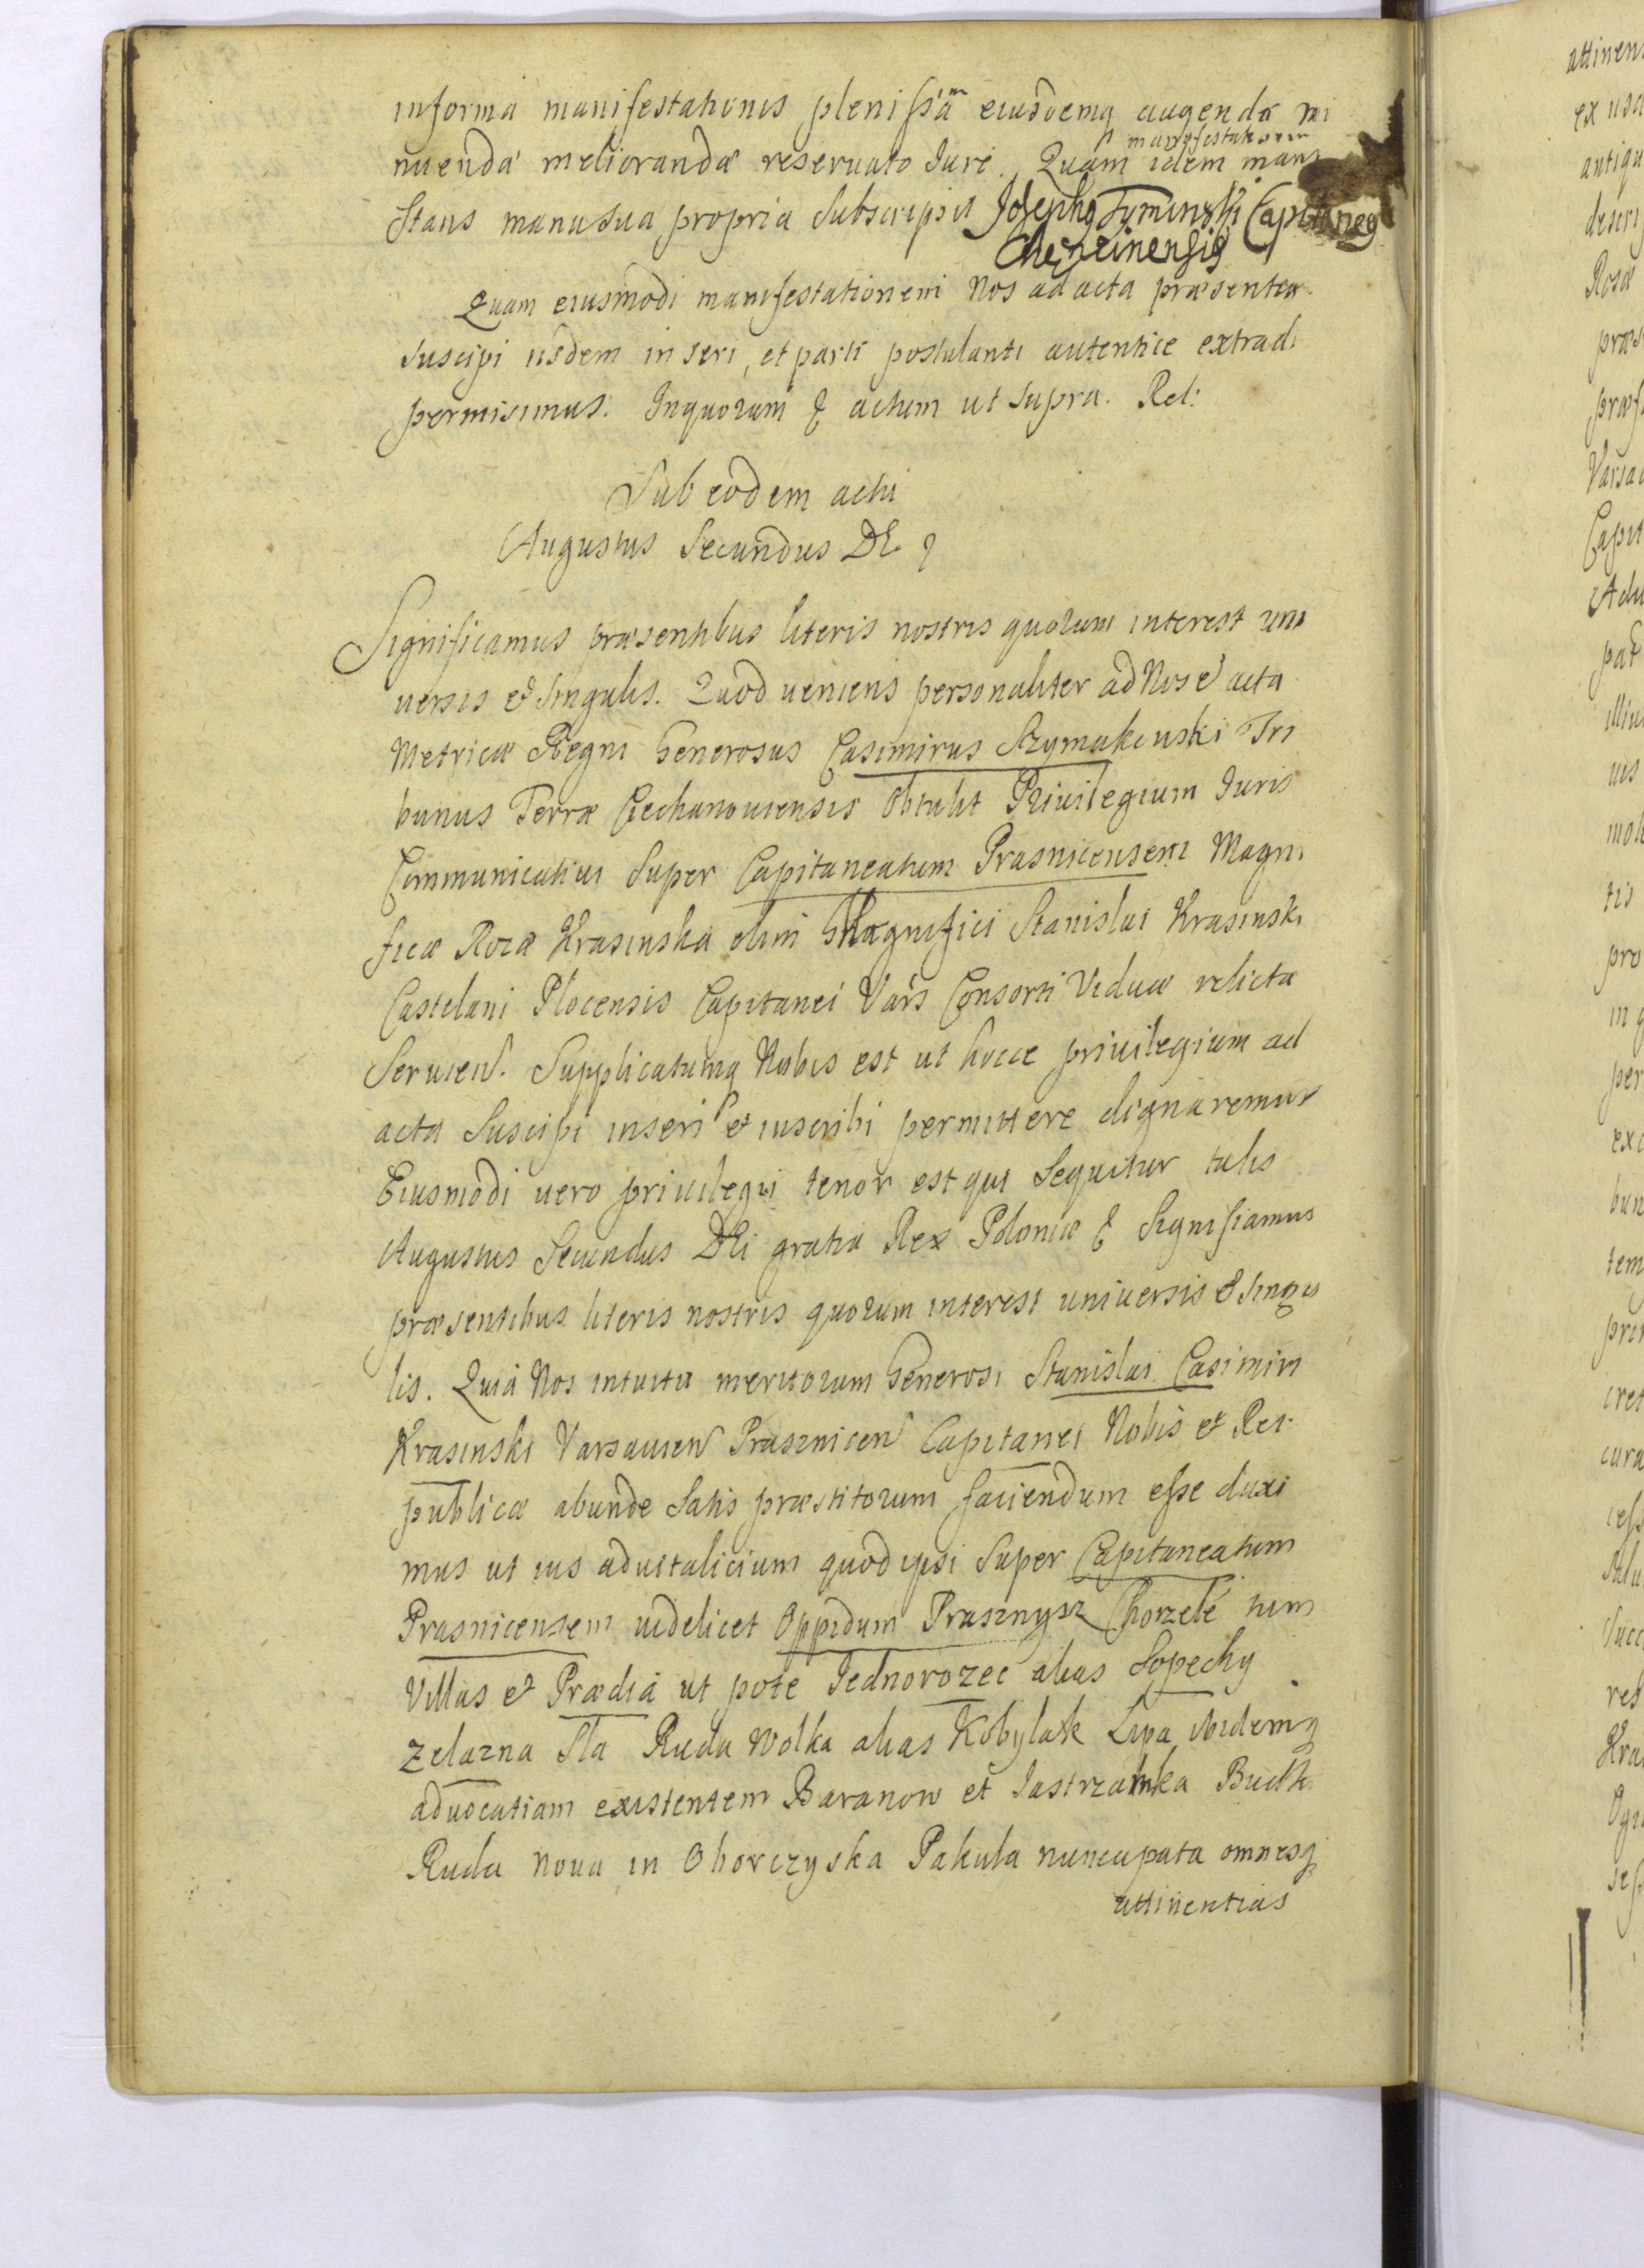 informa manifestationis plenissa͠m eiusdemq augendæ mi
nuendæ meliorandæ reseruato Iure. Quam manifestationem idem mani
stans manu sua propria subscripsit Josephq Tyminski Capitaneq
Checzinensis
Quam eiusmodi manifestationem Nos ad acta præsentia
suscipi iisdem inseri, et parti postulanti autentice extradi
permisimus. Inquorum & actum ut supra. Rel:
Sub eodem actu
Augustus Secundus DE &
Significamus præsentibus literis nostris quorum interest uni
uersis et singulis. Quod ueniens personaliter ad Nos et acta
Metricæ Regni Generosus Casimirus Szymakouski Tri
bunus Terræ Ciechanouiensis obtulit Priuilegium Iuris
Communicatiui super Capitaneatum Prasnicensem Magni
ficæ Rozæ Krasinska olim Magnifici Stanislai Krasinski
Castelani Plocensis Capitanei Vars Consorti Viduæ relictæ
Seruien. Supplicatumq Nobis est ut hocce priuilegium ad
acta suscipi inseri et inscribi permittere dignaremur
Eiusmodi uero priuilegij tenor est qui sequitur talis
Augustus Secundus DEi gratia Rex Poloniæ & Significamus
præsentibus literis nostris quorum interest uniuersis et singu
lis. Quia Nos intuitu meritorum Generosi Stanislai Casimiri
Krasinski Varsauien Prasznicen Capitanei Nobis et Rei
publicæ abunde satis præstitorum faciendum esse duxi
mus ut ius aduitalicium quod ipsi super Capitaneatum
Prasnicensem uidelicet Oppidum Prasznysz Chorzele tum
Villas et Prædia ut pote Jednorozec alias Sopechy
Zelazna Sta Ruda Wolka alias Kobylak Lipa ibidemq
aduocatiam existentem Baranow et Jastrzabka Budk
Ruda noua in Oborczyska Pakula nuncupata omnesq
attinentias
attinen
ex usu
antiqu
descri
Rosæ
præs
præf
Varsau
Capit
Adu